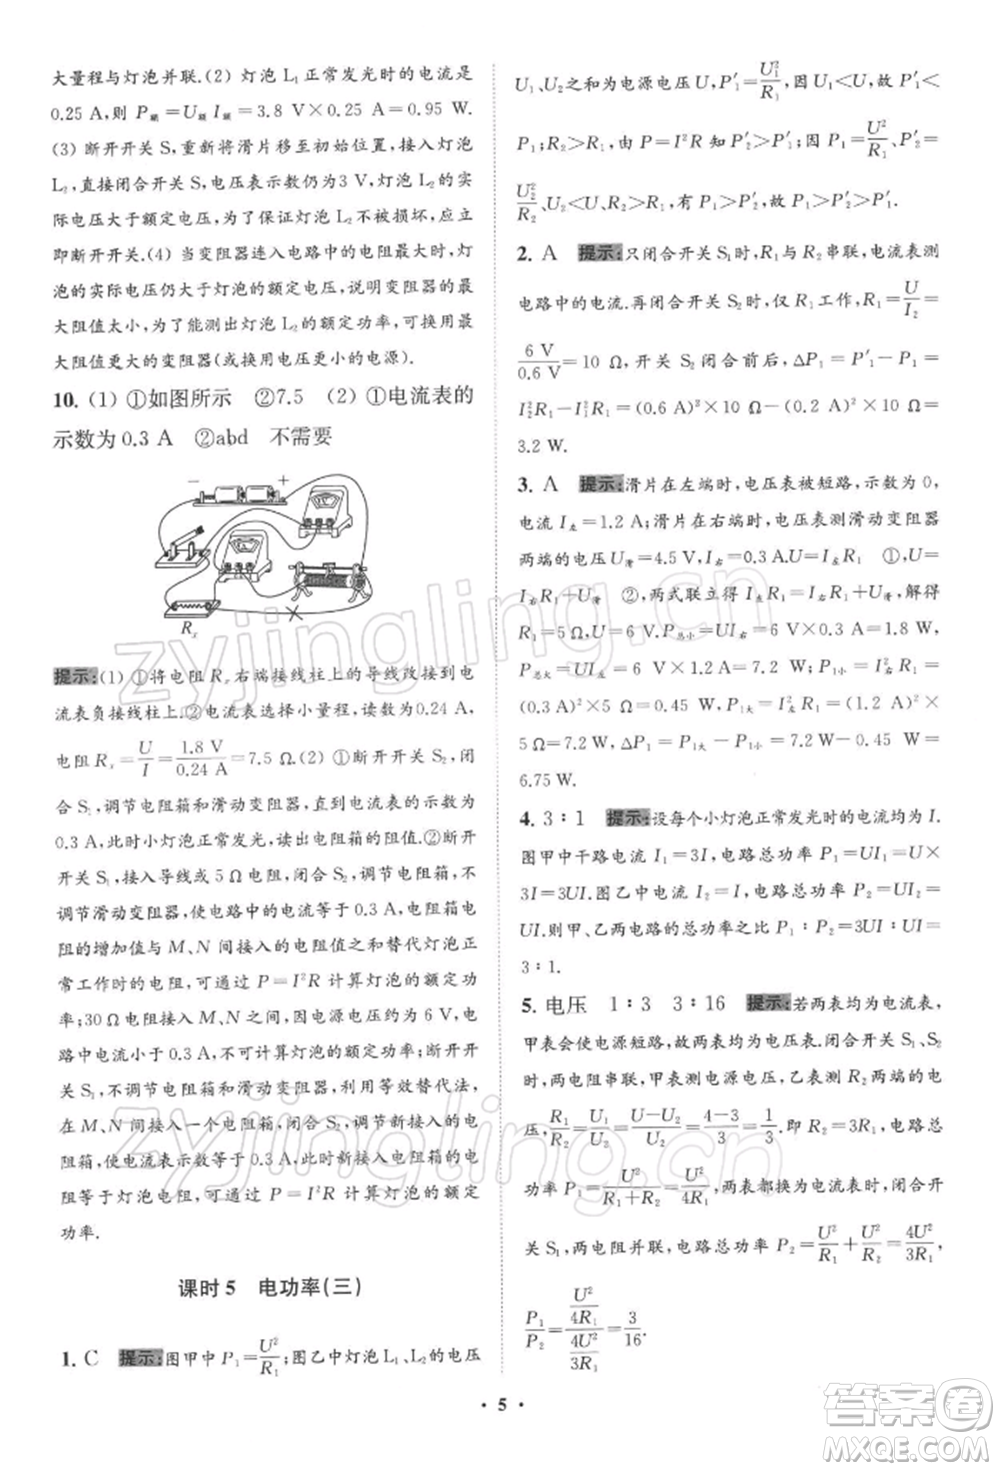 大量程与灯泡并联.(2) 灯泡 L₁ 正常发光时的电流是
0.25 A,则 P额=U额 I额=3.8 V×0.25 A=0.95 W.
(3) 断开开关 S,重新将滑片移至初始位置,接入灯泡
L₂,直接闭合开关 S,电压表示数仍为 3 V,灯泡 L₂ 的实
际电压大于额定电压,为了保证灯泡 L₂ 不被损坏,应立
即断开开关.(4) 当变阻器连入电路中的电阻最大时,灯
泡的实际电压仍大于灯泡的额定电压,说明变阻器的最
大阻值太小,为了能测出灯泡 L₂ 的额定功率,可换用最
大阻值更大的变阻器(或换用电压更小的电源).
10. (1) ①如图所示 ②7.5 (2) ①电流表的
示数为 0.3 A ②abd 不需要
− +
Rₓ
提示:(1) ①将电阻 Rₓ 右端接线柱上的导线改接到电
流表负接线柱上.②电流表选择小量程,读数为0.24 A,
电阻 Rₓ=U/I=1.8 V/0.24 A=7.5 Ω.(2) ①断开开关 S₂,闭
合 S₁,调节电阻箱和滑动变阻器,直到电流表的示数为
0.3 A,此时小灯泡正常发光,读出电阻箱的阻值.②断开
开关 S₁,接入导线或 5 Ω 定值电阻,再闭合开关 S₁,不
调节滑动变阻器,使电路中的电流等于 0.3 A,电阻箱电
阻的增加值与 M、N 间接入的电阻值之和替代灯泡正
常工作时的电阻,通过 P=I²R 计算灯泡的额定功
率;30 Ω 电阻接入 M、N 之间,因电源电压约为 6 V,电
路中电流小于 0.3 A,不可计算灯泡的额定功率.断开开
关 S₁,不调节电阻箱和滑动变阻器,利用等效替代法,在
M、N 之间接入另一相同规格的电阻箱,调节新接入的电
阻箱,使电流表示数等于 0.3 A,此时新接入电阻箱的电
阻等于灯泡电阻,可通过 P=I²R 计算灯泡的额定
功率.
课时 5 电功率(三)
1. C 提示:图甲中 P₁=U²/R₁;图乙中灯泡 L₁、L₂ 的电压
U₁、U₂ 之和为电源电压 U,P′₁=U₁²/R₁,因 U₁<U,故 P′₁<
P₁;R₂>R₁,由 P=I²R 知 P′₂>P′₁;因 P₁=U²/R₁、P′₂=
U₂²/R₂、U₂<U、R₂>R₁,有 P₁>P′₂,故 P₁>P′₂>P′₁.
2. A 提示:只闭合开关 S₁ 时,R₁ 与 R₂ 串联,电流表测
电路中的电流.再闭合开关 S₂ 时,仅 R₁ 工作,R₁=U/I₂=
6 V/0.6 A=10 Ω,开关 S₂ 闭合前后,ΔP₁=P′₁−P₁=
I₂²R₁−I₁²R₁=(0.6 A)²×10 Ω−(0.2 A)²×10 Ω=
3.2 W.
3. A 提示:滑片在左端时,电压表被短路,示数为 0,
电流 I左=1.2 A;滑片在右端时,电压表测滑动变阻器
两端的电压 U滑=4.5 V,I右=0.3 A.U=I左R₁ ①,U=
I右R₁+U滑 ②,两式联立得 I左R₁=I右R₁+U滑,解得
R₁=5 Ω,U=6 V.P总小=UI右=6 V×0.3 A=1.8 W,
P总大=UI左=6 V×1.2 A=7.2 W.P₁小=I右²R₁=
(0.3 A)²×5 Ω=0.45 W,P₁大=I左²R₁=(1.2 A)²×
5 Ω=7.2 W,故 ΔP₁=P₁大−P₁小=7.2 W−0.45 W=
6.75 W.
4. 3∶1 提示:设每个小灯泡正常发光时的电流均为 I.
图甲中干路电流 I₁=3I,电路总功率 P₁=UI₁=U×
3I=3UI;图乙中电流 I₂=I,电路总功率 P₂=UI₂=
UI.则甲、乙两电路的总功率之比 P₁∶P₂=3UI∶UI=
3∶1.
5. 电压 1∶3 3∶16 提示:若两表均为电流表,
甲表会使电源短路,故两表均为电压表.闭合开关 S₁、S₂
时,两电阻串联,甲表测电源电压,乙表测 R₂ 两端的电
压,R₁/R₂=U₁/U₂=(U−U₂)/U₂=(4−3)/3=1/3.即 R₂=3R₁,电路总
功率 P₁=U²/(R₁+R₂)=U²/4R₁,两表都换为电流表时,闭合开
关 S₁,两电阻并联,电路总功率 P₂=U²/R₁+U²/R₂=4U²/3R₁,
P₁/P₂=(U²/4R₁)/(4U²/3R₁)=3/16.
• 5 •
zyjingling.cn
zyjingling.cn
答案圈
MXQE.COM